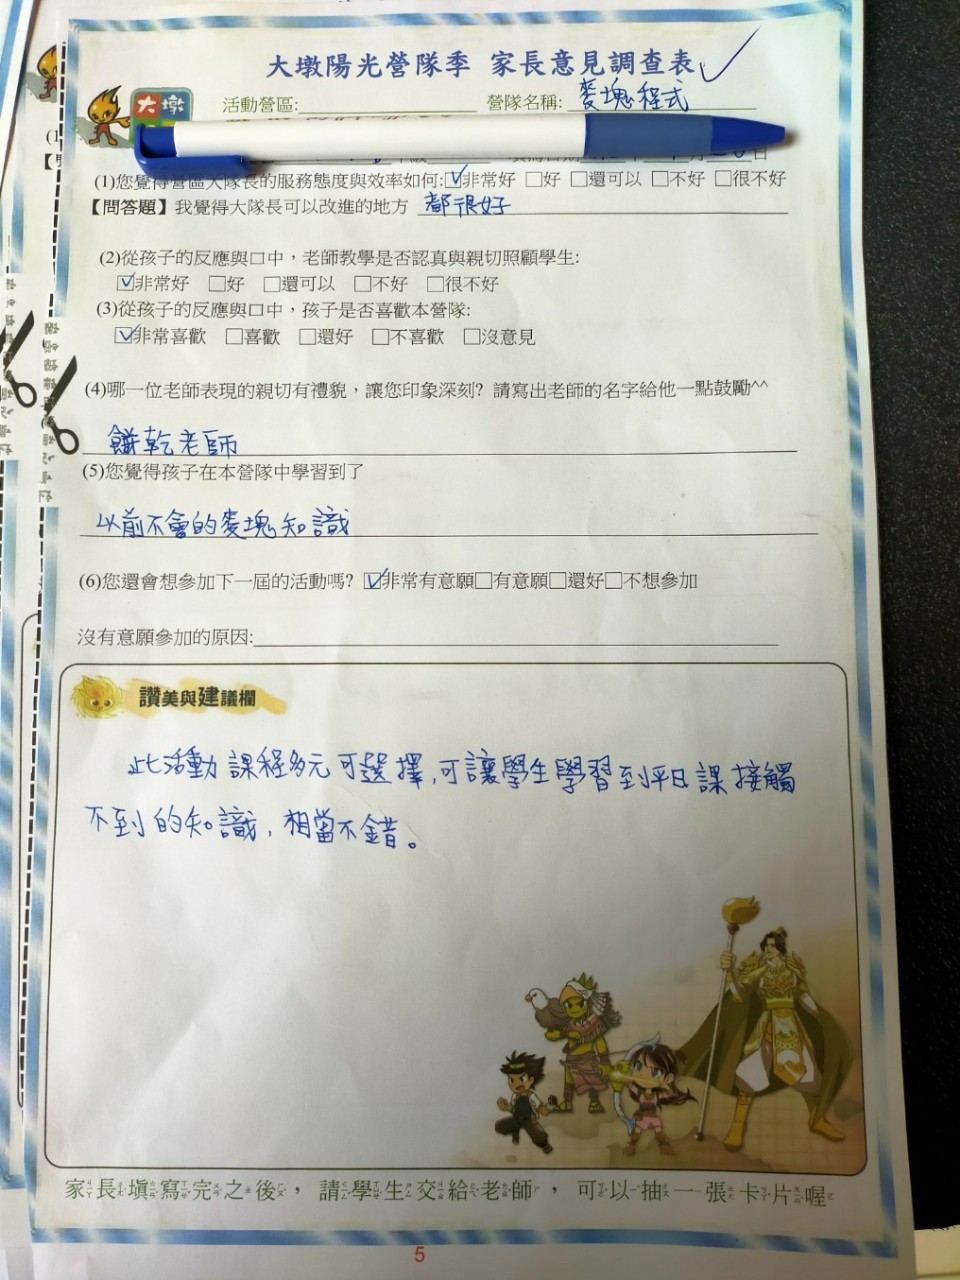 大墩陽光營隊季 家長意見調查表✓
大墩
活動營區: 營隊名稱: 麥塊程式
(1)您覺得營區大隊長的服務態度與效率如何:☑非常好 □好 □還可以 □不好 □很不好
【問答題】我覺得大隊長可以改進的地方 都很好
(2)從孩子的反應與口中，老師教學是否認真與親切照顧學生:
☑非常好 □好 □還可以 □不好 □很不好
(3)從孩子的反應與口中，孩子是否喜歡本營隊:
☑非常喜歡 □喜歡 □還好 □不喜歡 □沒意見
(4)哪一位老師表現的親切有禮貌，讓您印象深刻? 請寫出老師的名字給他一點鼓勵^^
餅乾老師
(5)您覺得孩子在本營隊中學習到了
以前不會的麥塊知識
(6)您還會想參加下一屆的活動嗎? ☑非常有意願□有意願□還好□不想參加
沒有意願參加的原因:
讚美與建議欄
此活動課程多元可選擇,可讓學生學習到平日課接觸
不到的知識,相當不錯。
家長填寫完之後，請學生交給老師，可以抽一張卡片喔
5